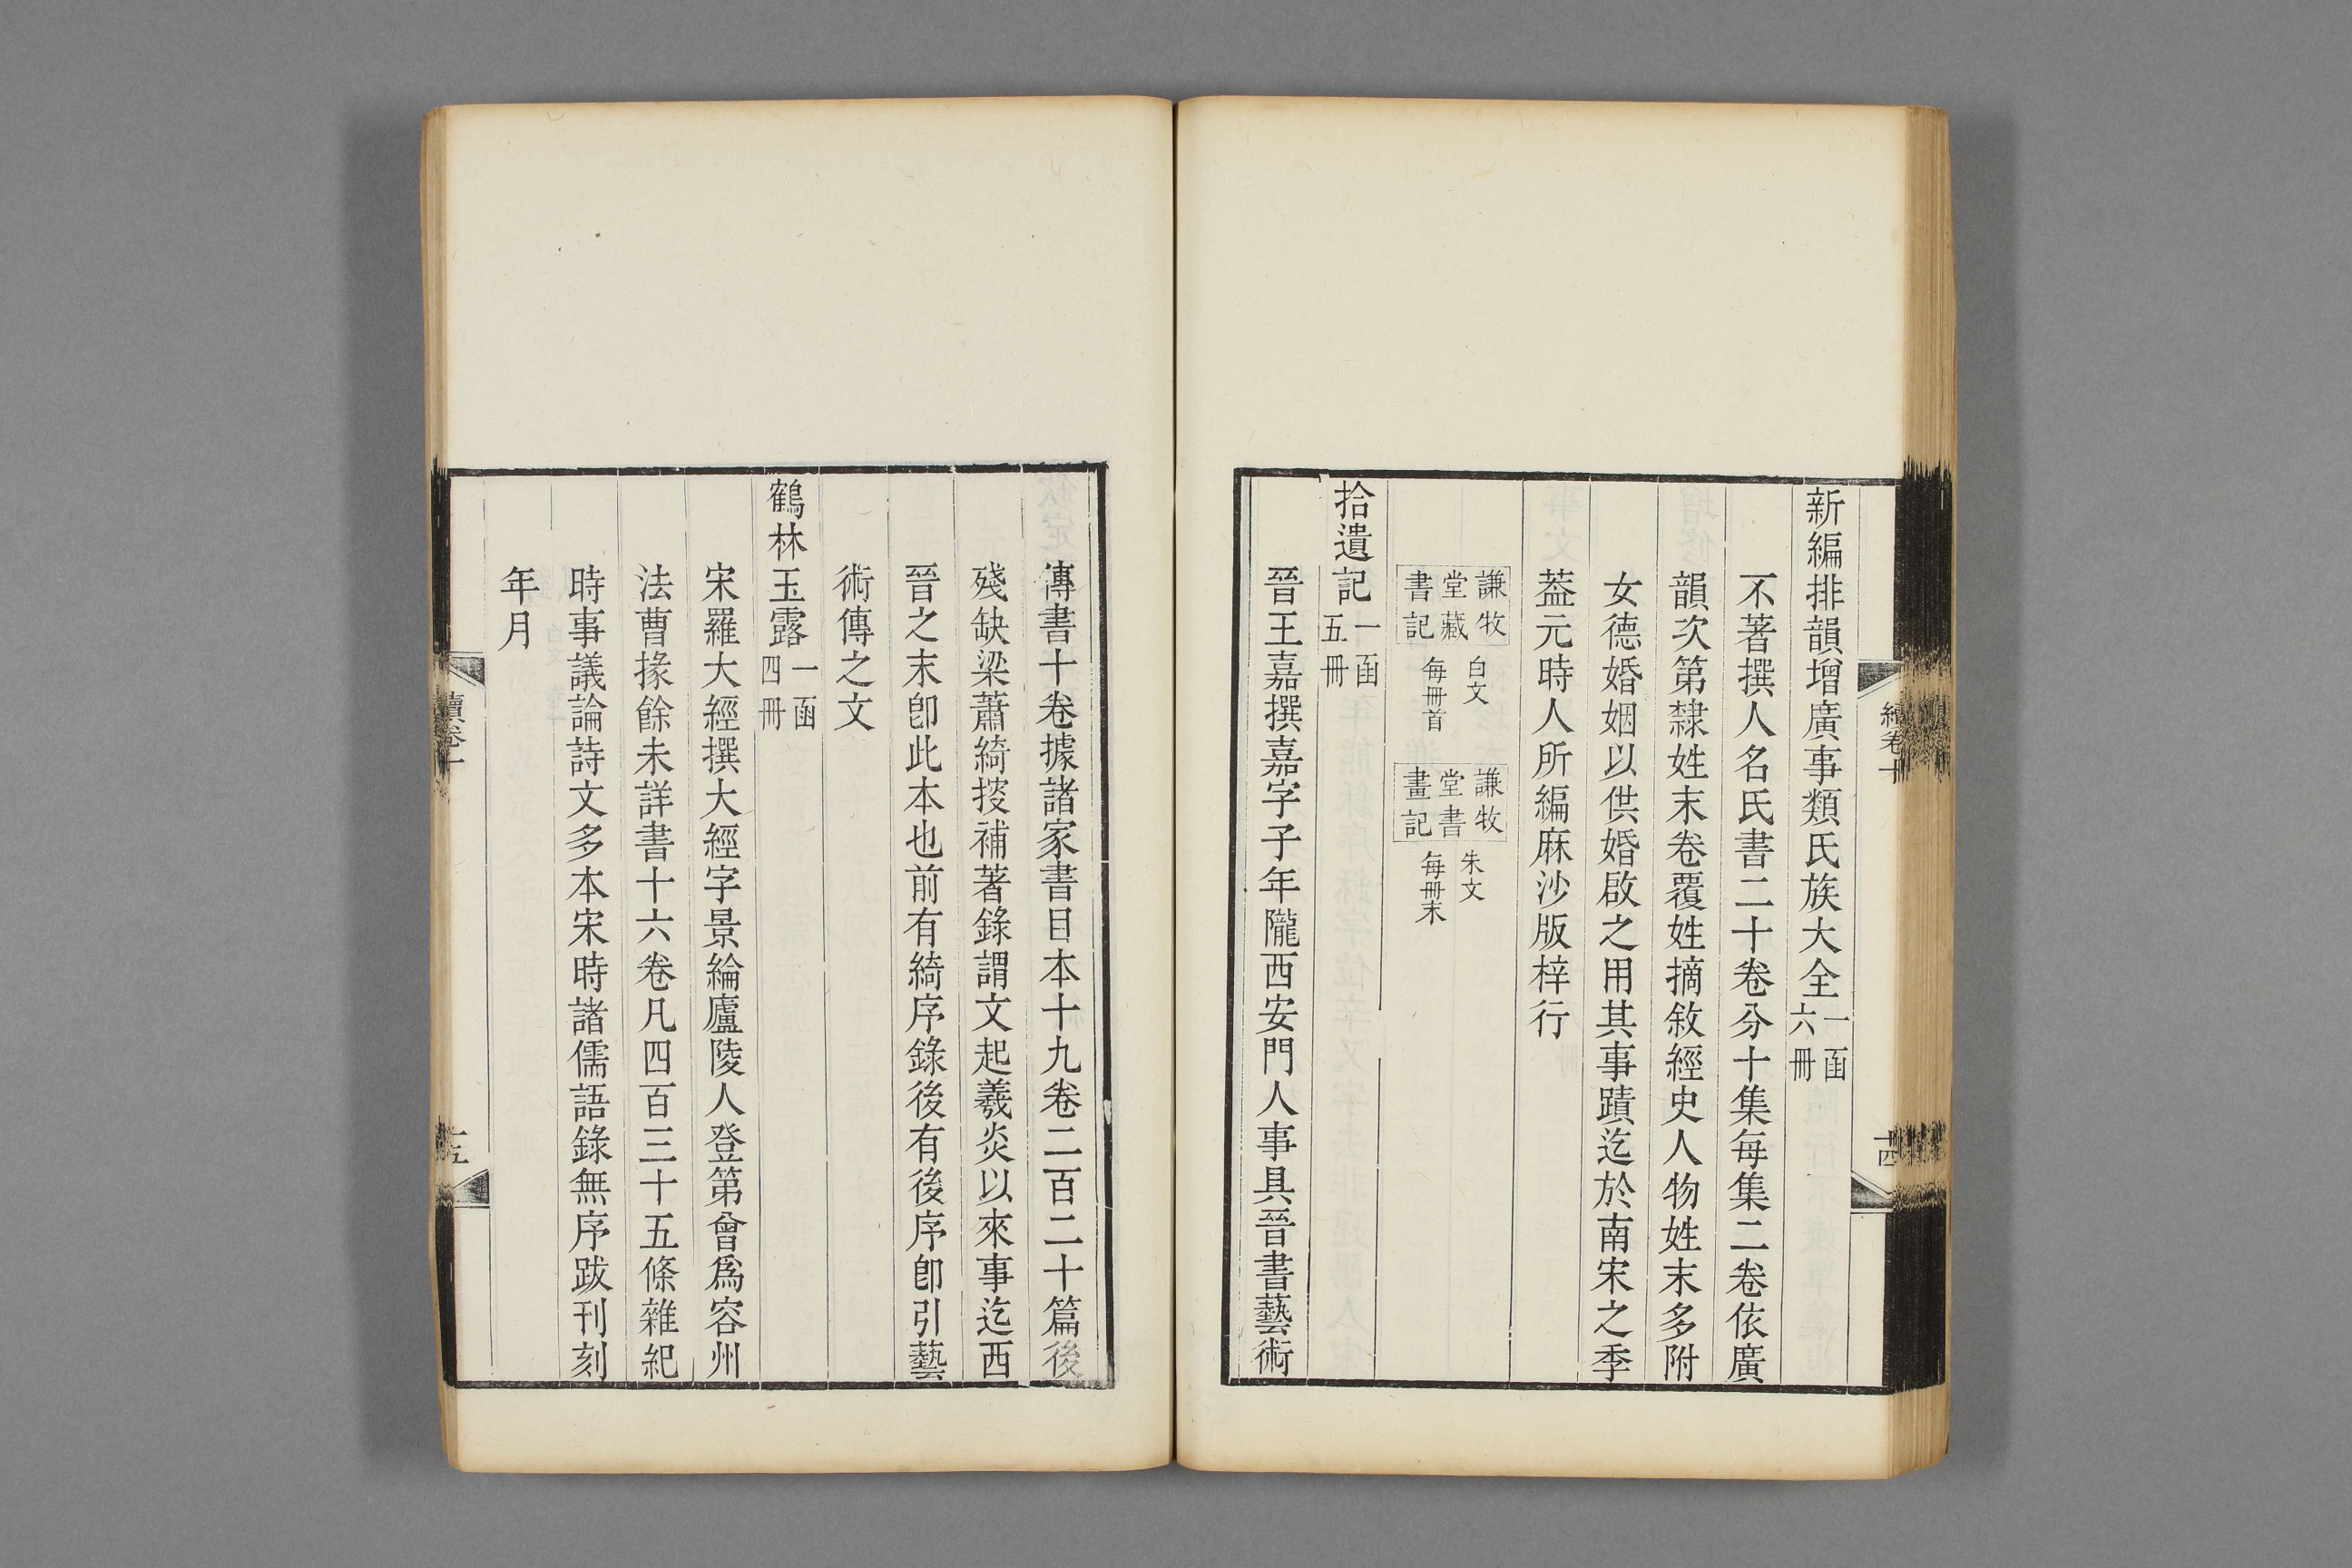 續卷十
十四
新編排韻增廣事類氏族大全一函六冊
不著撰人名氏書二十卷分十集每集二卷依廣
韻次第隸姓末卷覆姓摘敘經史人物姓末多附
女德婚姻以供婚啟之用其事蹟迄於南宋之季
葢元時人所編麻沙版梓行
謙牧堂藏書記 白文每冊首 謙牧堂書畫記 朱文每冊末
拾遺記一函五冊
晉王嘉撰嘉字子年隴西安門人事具晉書藝術
傳書十卷據諸家書目本十九卷二百二十篇後
殘缺梁蕭綺掇補著錄謂文起羲炎以來事迄西
晉之末卽此本也前有綺序錄後有後序卽引藝
術傳之文
鶴林玉露一函四冊
宋羅大經撰大經字景綸廬陵人登第曾爲容州
法曹掾餘未詳書十六卷凡四百三十五條雜紀
時事議論詩文多本宋時諸儒語錄無序跋刊刻
年月
續卷十
十五